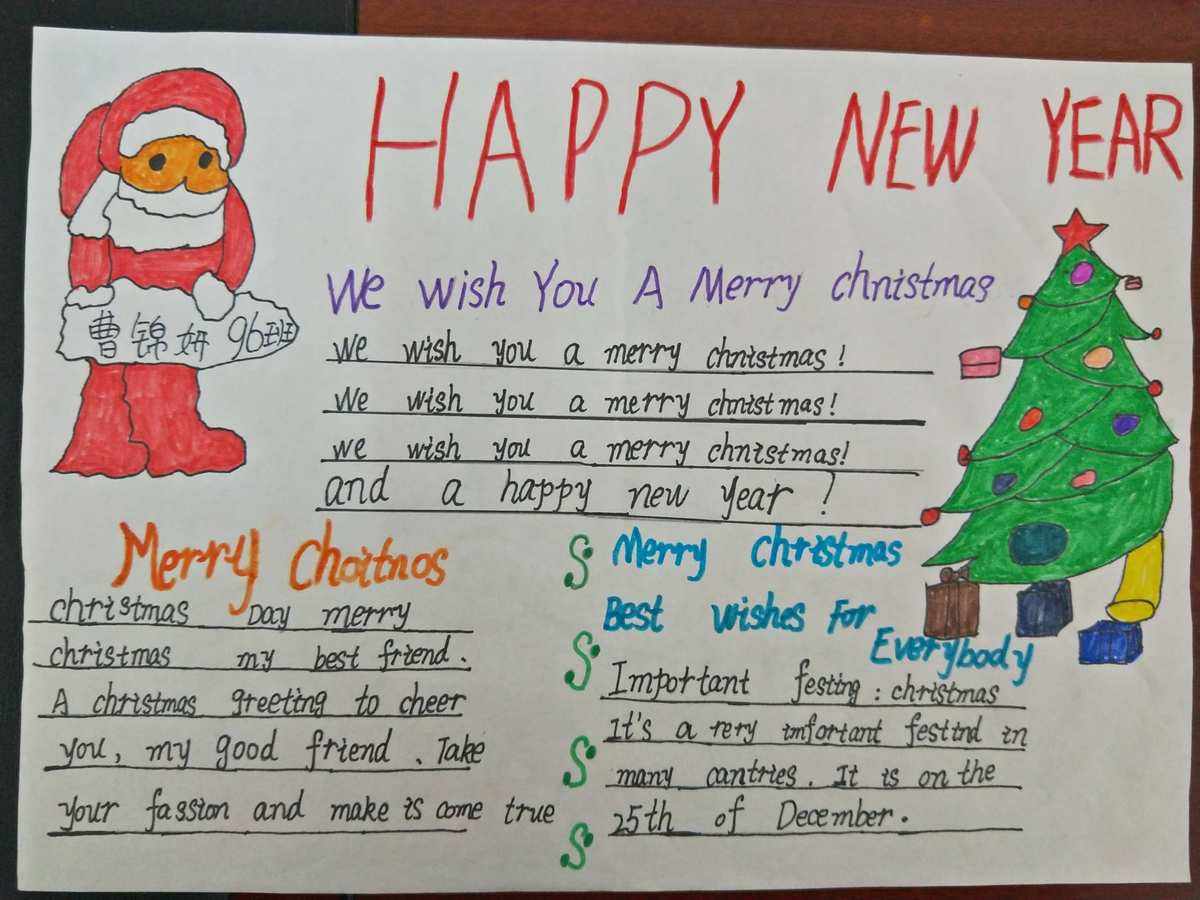 HAPPY NEW YEAR
曹锦妍 96班
We wish You A Merry chnistmas
We wish you a merry chnistmas!
We wish you a merry chnistmas!
we wish you a merry chnistmas!
and a happy new year!
Merry Choitnos
christmas Day merry
christmas my best friend.
A christmas greeting to cheer
you, my good friend. Take
your fassion and make is come true
Merry christmas
Best wishes For
Everybody
Important festing: christmas
It's a rery imfortant festind in
many cantries. It is on the
25th of December.